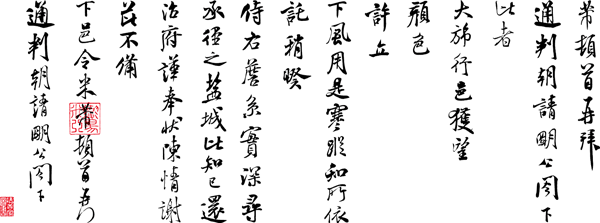 芾頓首再拜
通判朝請明公閣下
比者
大旆行邑獲望
顏色
許立
下風用是寒蹤知所依
託稍暌
侍右詹系實深尋
承徑之鹽城比知已還
治府謹奉狀陳情謝
芘不備
下邑令米芾頓首再拜
通判朝請明公閣下